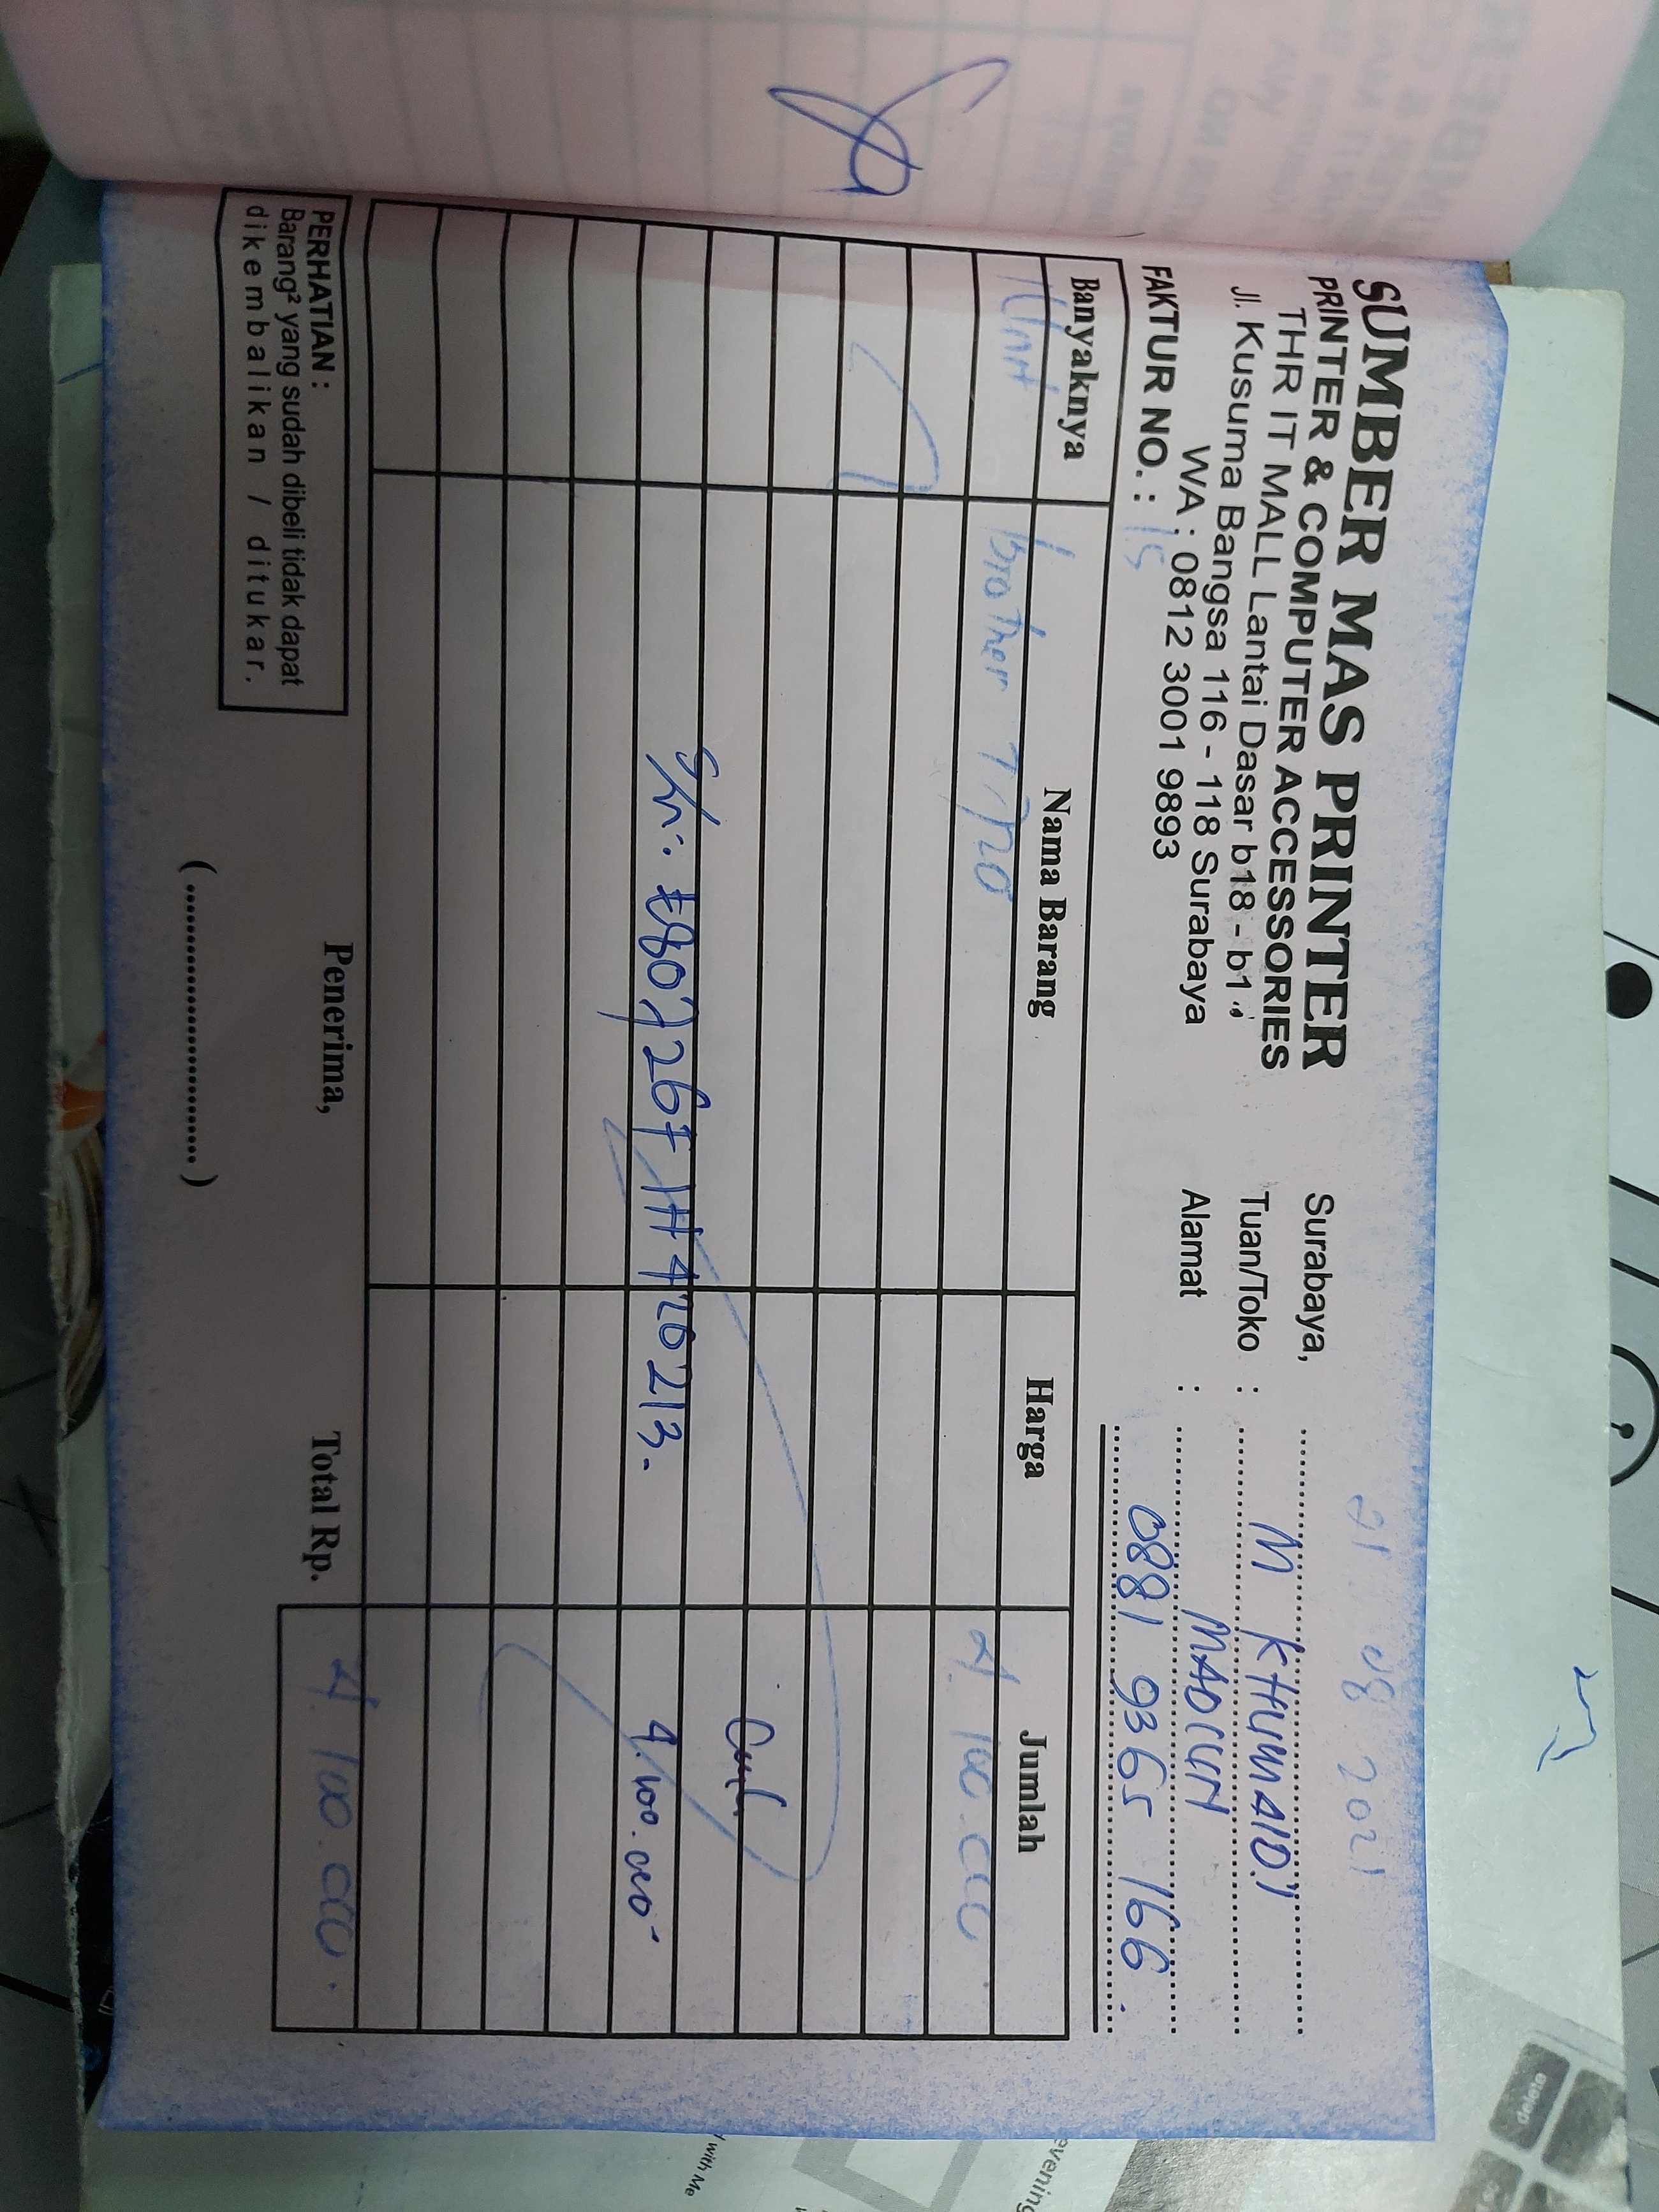 SUMBER MAS PRINTER
PRINTER & COMPUTER ACCESSORIES
THR IT MALL Lantai Dasar b18 - b1
Jl. Kusuma Bangsa 116 - 118 Surabaya
WA : 0812 3001 9893
FAKTUR NO. : 15
Surabaya, 21 08 2021
Tuan/Toko : M KHUMAIDI
Alamat :
0881 9365 166.
Banyaknya Nama Barang Harga Jumlah
Brother 4.100.000
4.100.000
PERHATIAN :
Barang² yang sudah dibeli tidak dapat
dikembalikan / ditukar.
Penerima,
( ............................ )
Total Rp. 4.100.000.
delete
evening
with Me